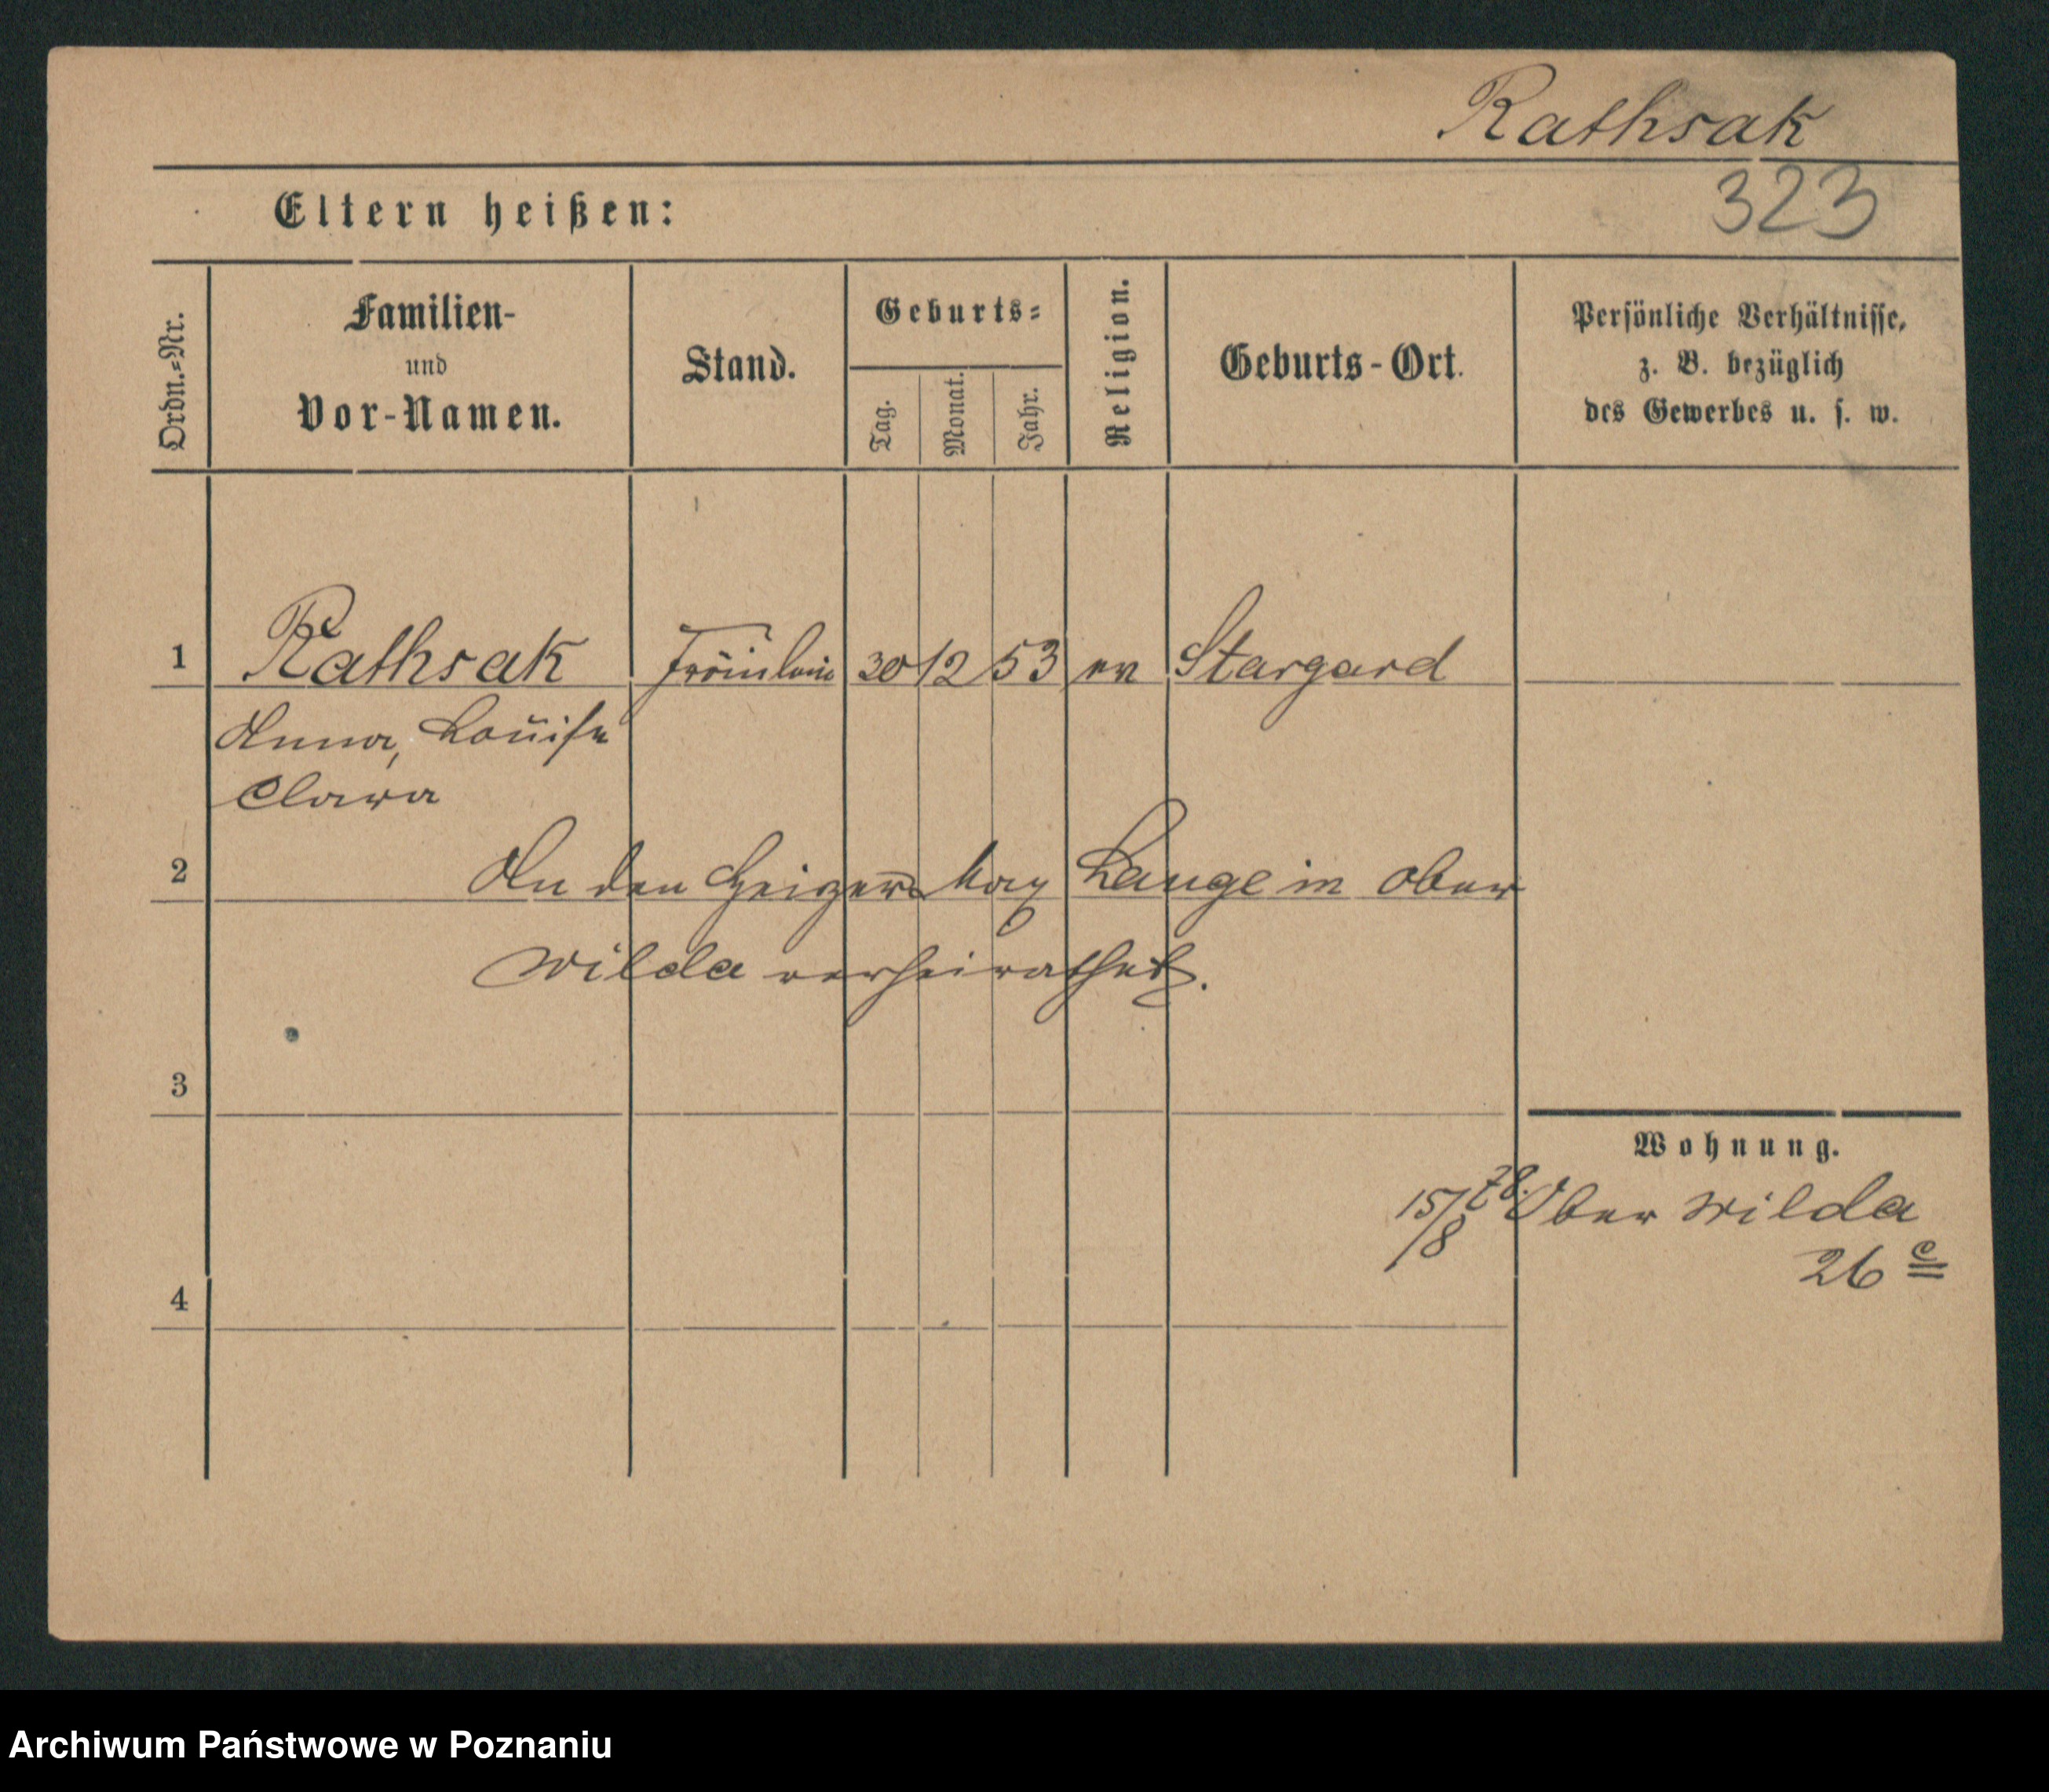 Rathsak
323
Eltern heißen:
Ordn.=Nr.
Familien-
und
Vor-Namen.
Stand.
Geburts=
Tag.
Monat.
Jahr.
Religion.
Geburts-Ort.
Persönliche Verhältnisse,
z. B. bezüglich
des Gewerbes u. s. w.
1 Rathsak Fräulein 30 12 53 ev Stargard
Anna, Louise
Clara
2 An den Heizer Max Lange in Ober
Wilda verheirathet.
3
Wohnung.
15/8 78. Ober Wilda
26 c
4
Archiwum Państwowe w Poznaniu